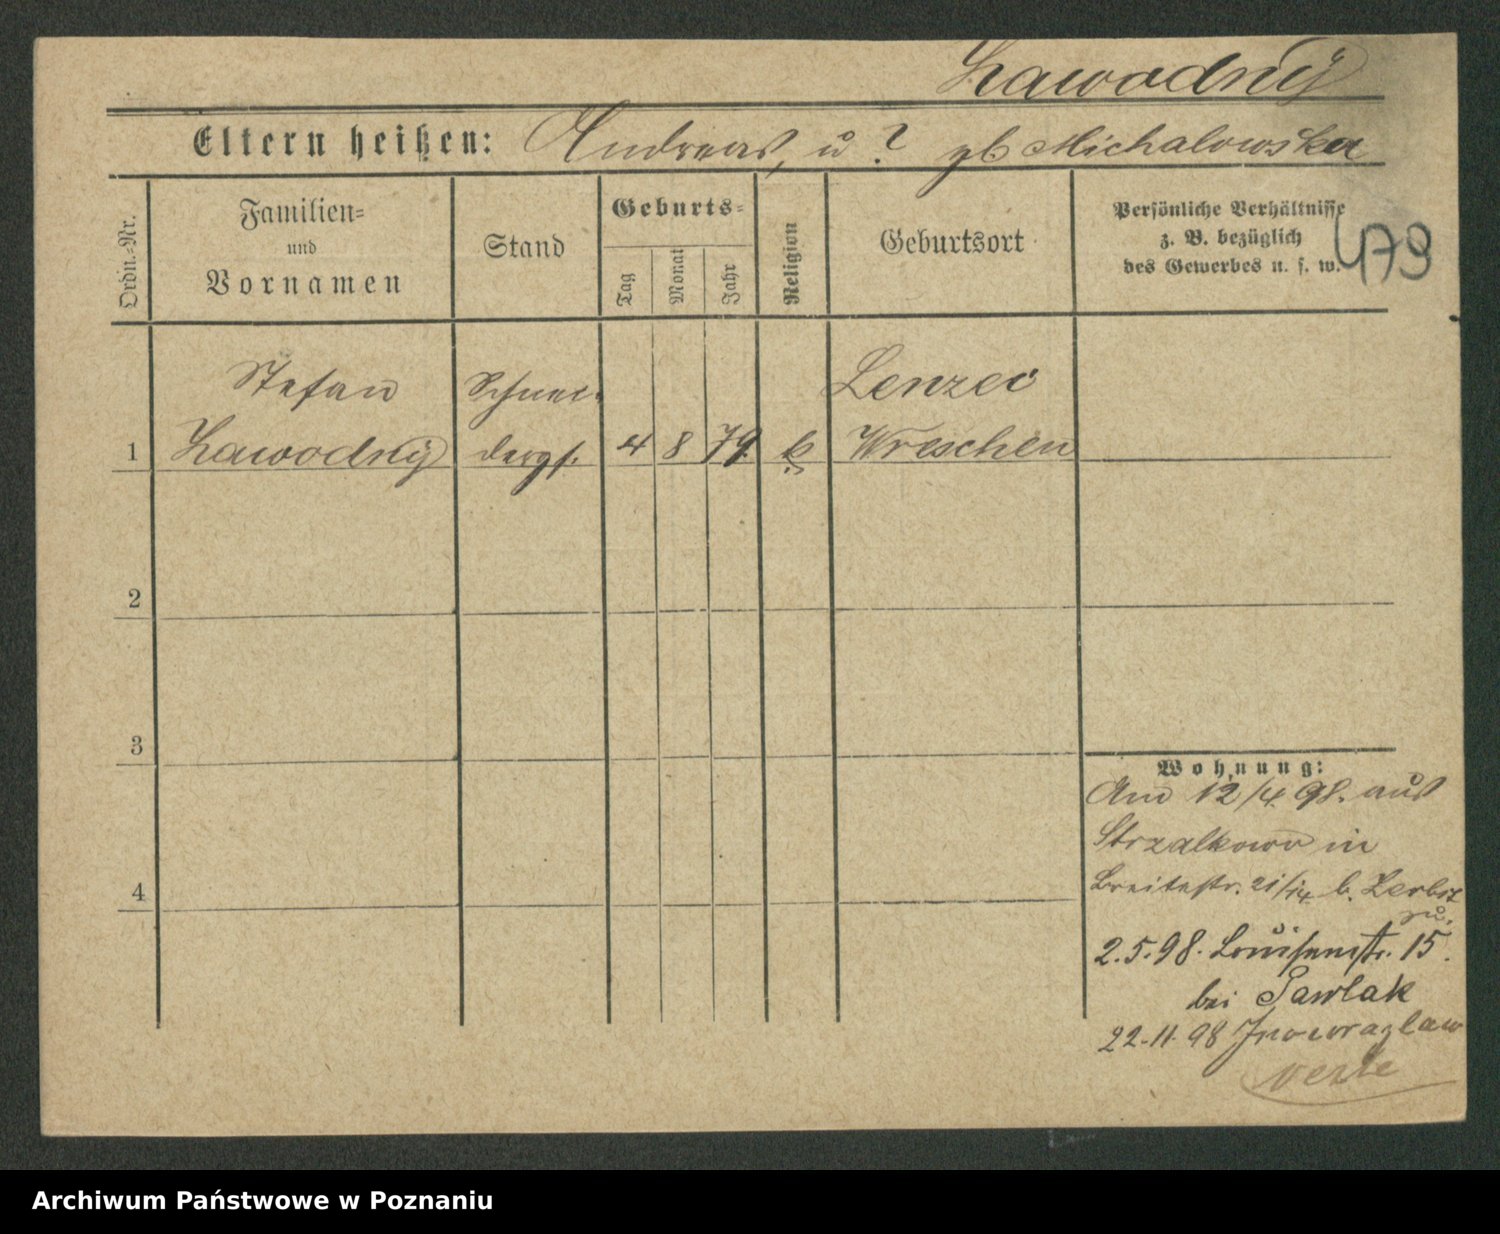 Zawodny
Eltern heißen: Andreas, u ? gb Michalowska
Ordn.-Nr.
Familien-
und
Vornamen
Stand
Geburts-
Tag
Monat
Jahr
Religion
Geburtsort
Persönliche Verhältnisse
z. B. bezüglich
des Gewerbes u. s. w.
479
Stefan
Schnei-
Lenzec
1
Zawodny
dergs.
4
8
79.
k
Wreschen
2
3
Wohnung:
Am 12/4 98. aus
Strzalkowo in
4
Breitestr. 21/14 b. Zerbst
zu.
2.5.98. Louisenstr. 15.
bei Pawlak
22.11.98 Inowrazlaw
verte
Archiwum Państwowe w Poznaniu